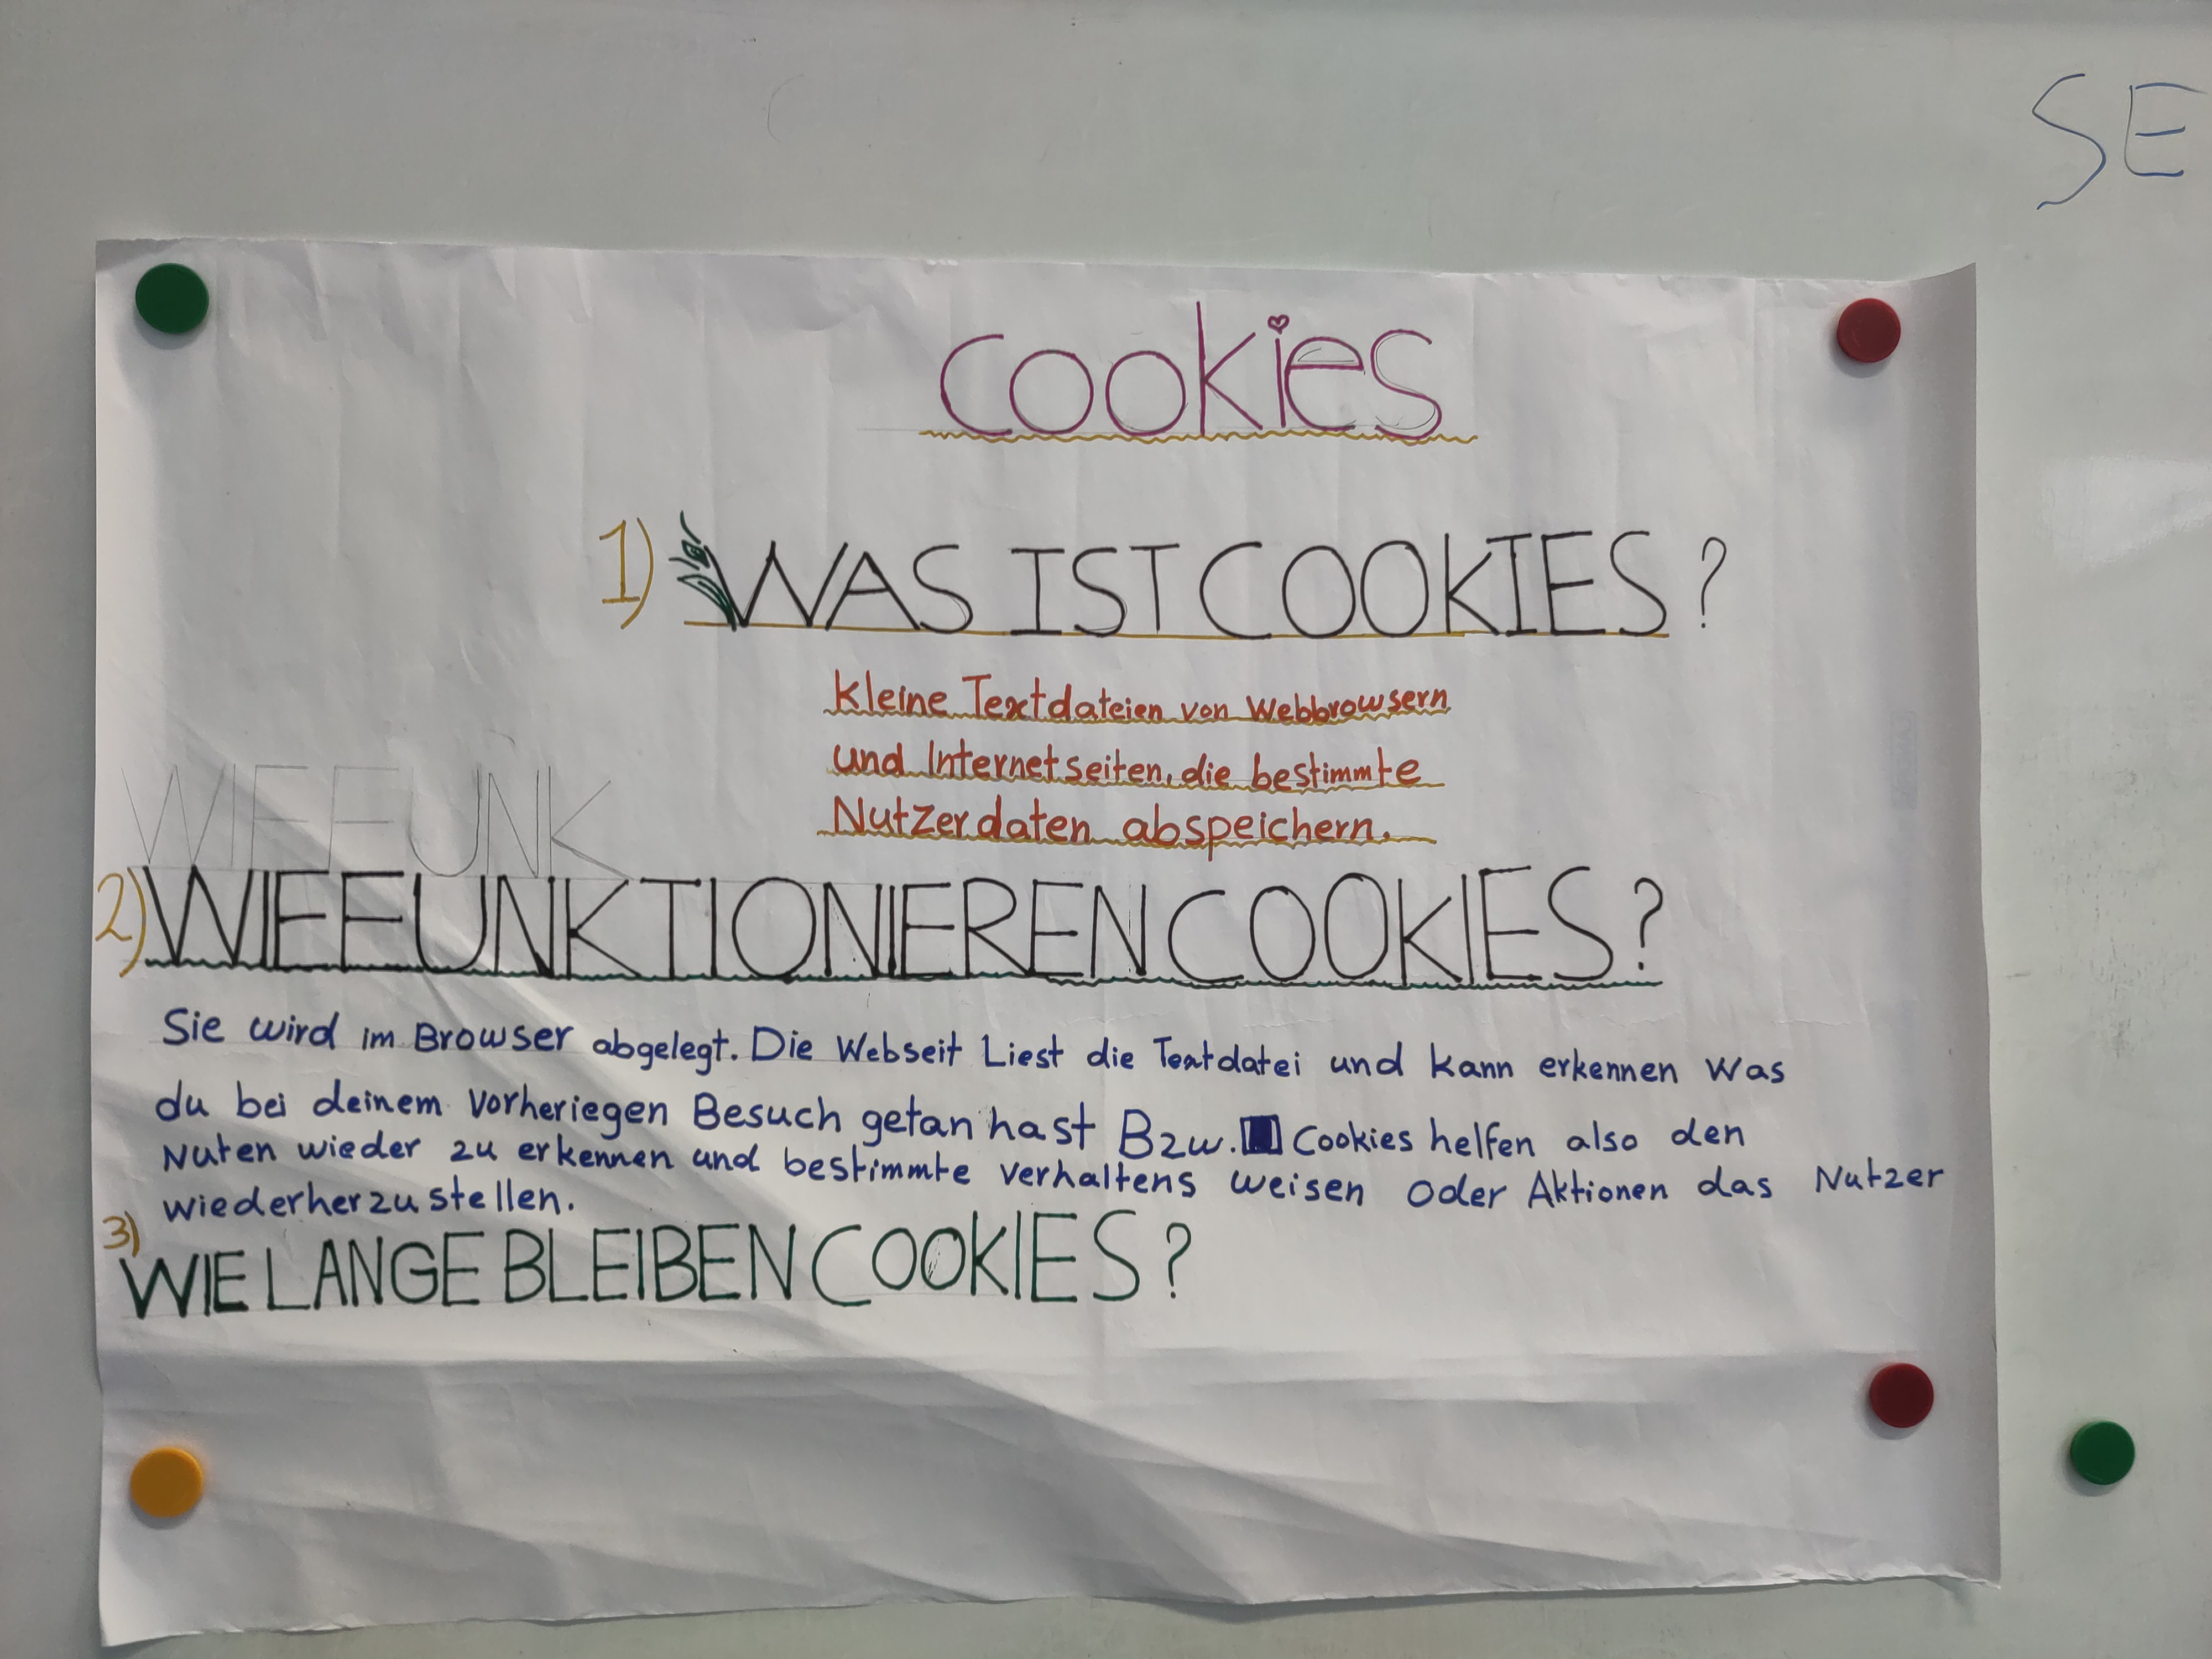 SE
cookies
1) WAS IST COOKIES?
Kleine Textdateien von Webbrowsern
und Internetseiten, die bestimmte
Nutzerdaten abspeichern.
WIE FUNK
2) WIE FUNKTIONIEREN COOKIES?
Sie wird im Browser abgelegt. Die Webseit Liest die Textdatei und kann erkennen Was
du bei deinem Vorheriegen Besuch getan hast Bzw. Cookies helfen also den
Nuten wieder zu erkennen und bestimmte verhaltens weisen oder Aktionen das Nutzer
wiederherzustellen.
3)
WIE LANGE BLEIBEN COOKIES?